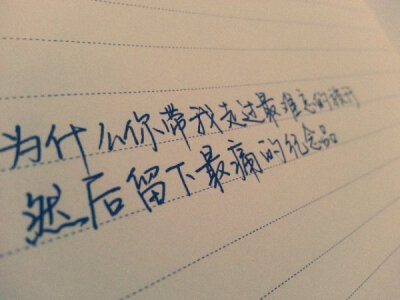 为什么你带我走过最难忘的旅行
然后留下最痛的纪念品